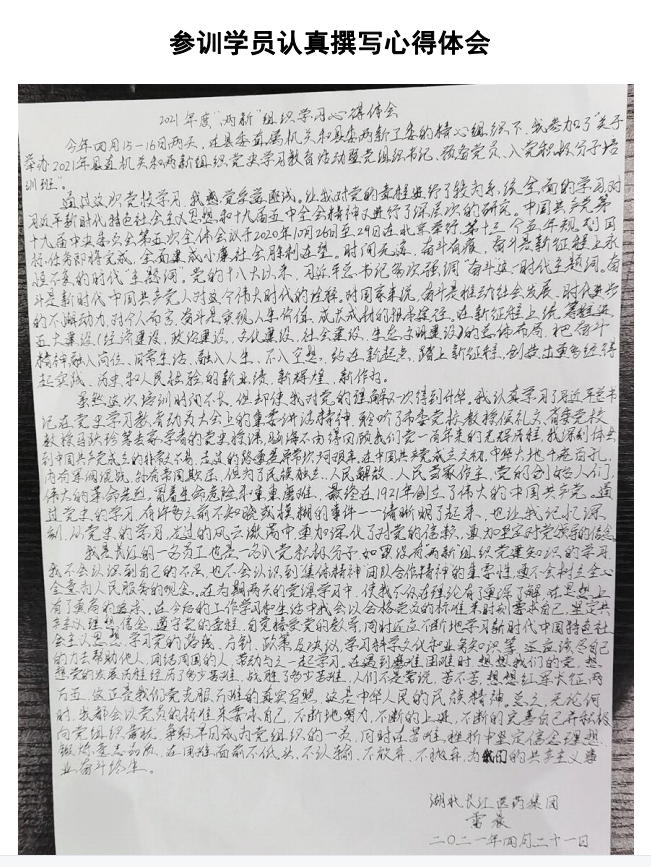 参训学员认真撰写心得体会
2021年度"两新"组织学习心得体会
今年四月15-16日两天，在县委直属机关和县委两新工委的精心组织下，我参加了"关于
举办2021年县直机关和两新组织党史学习教育活动暨党组织书记、预备党员、入党积极分子培
训班"。
通过这次党校学习，我感觉受益匪浅。让我对党的章程进行了较为系统、全面的学习，对
习近平新时代特色社会主义思想和十九届五中全会精神又进行了深层次的研究。中国共产党第
十九届中央委员会第五次全体会议于2020年10月26日至29日在北京举行，第十三个五年规划目
标任务即将完成，全面建成小康社会胜利在望。时间无涯，奋斗有痕，奋斗是新征程上永
的时代"主题词"。党的十八大以来，习近平总书记多次强调"奋斗"这一时代主题词。奋
斗是新时代中国共产党人对这个伟大时代的诠释。对国家来说，奋斗是推动社会发展、时代进步
的不竭动力，对个人而言，奋斗是实现人生价值、成长成材的 在新征程上，统筹推进
五大建设（经济建设、政治建设、文化建设、社会建设、生态文明建设）的总体布局，把奋斗
精神融入岗位、日常生活，融入人生，不入空想，站在新起点，踏上新征程，创造出更多经得
起实践、历史和人民检验的新业绩、新辉煌、新作为。
虽然这次培训时间不长，但却使我对党的理解又一次得到升华。我认真学习了习近平总书
记在党史学习教育动员大会上的重要讲话精神，聆听了市委党校教授 、省委党校
教授 等专家学者的党史授课，脑海不由得回顾我们党一百年来的光辉历程，我深刻体会
到中国共产党成立的非常不易，走过的路更是异常坎坷艰辛。在中国共产党成立之初，中华大地千疮百孔，
内有军阀混战，外有帝国欺压，但为了民族独立，人民解放，人民当家作主，党的创始人们，
伟大的革命先烈，冒着生命危险和重重磨难，最终在1921年创立了伟大的中国共产党。通
过党史的学习，有许多之前不知晓或模糊的事件一一清晰明了起来，也让我记忆深
刻，从党史的学习，走过的风云激荡中更加深化了对党的信赖，更加坚定对党领导的信念。
我是长江的一名员工也是一名入党积极分子，如果没有两新组织党建知识的学习，
我不会认识到自己的不足，也不会认识到集体精神团队合作精神的重要性，更不会树立全心
全意为人民服务的观念。在为期两天的党课学习中，使我不仅在理论有了重深了解，在思想上
有了更高的追求。在今后的工作学习和生活中我会以合格党员的标准来时刻要求自己，坚定共
产主义理想信念，遵守党的章程，自觉接受党的教导，同时还应不断地学习新时代中国特色社
会主义思想，学习党的路线、方针、政策及决议，学习科学文化和业务知识等，还应该尽自己
的力去帮助他人，团结周围的人，带动他们一起学习。在遇到艰难困难时，想想我们的党，想
想党的发展历程经历了多少苦难，战胜了多少苦难，人们不是常说，苦不苦，想想红军长征两
万五，这正是我们党克服万难的真实写照，这是中华人民的民族精神。总之，无论何
时，我都会以党员的标准来要求自己，不断地努力，不断的上进，不断的完善自己并积极
向党组织靠拢，争取早日成为党组织的一员，同时在苦难、挫折中坚定信念理想，
锻炼意志品质，在困难面前不低头、不认输、不放弃、不抛弃，为我们的共产主义事
业奋斗终生。
湖北长江医药集团
雷
二〇二一年四月二十一日